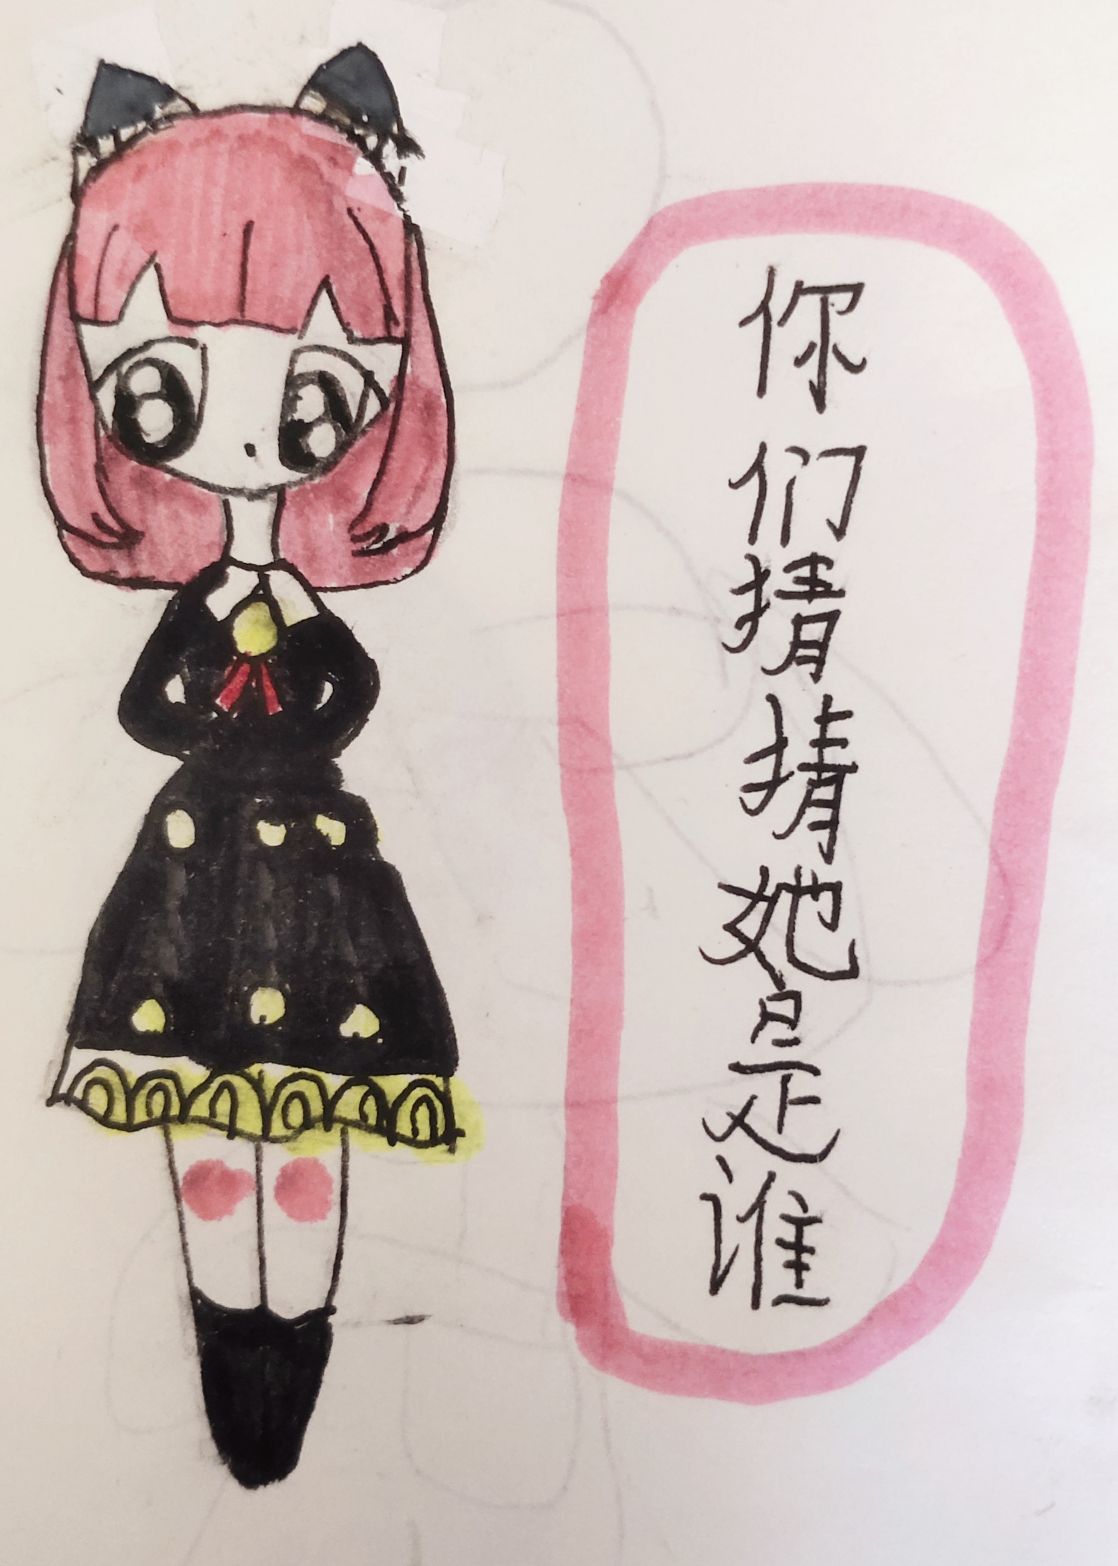 你们猜猜她是谁